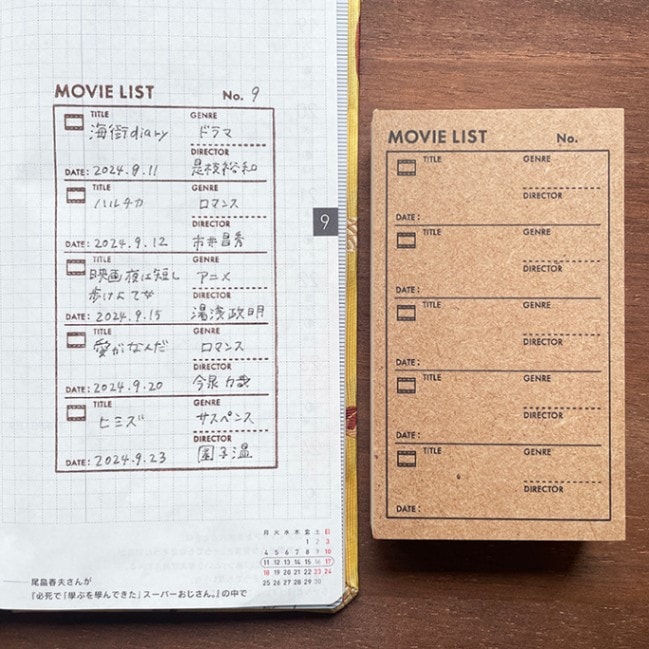 MOVIE LIST No. 9
TITLE GENRE
海街diary ドラマ
DIRECTOR
DATE: 2024.9.11 是枝裕和
TITLE GENRE
ハルチカ ロマンス
DIRECTOR
DATE: 2024.9.12 市井昌秀
TITLE GENRE
映画夜は短し アニメ
歩けよ乙女 DIRECTOR
DATE: 2024.9.15 湯浅政明
TITLE GENRE
愛がなんだ ロマンス
DIRECTOR
DATE: 2024.9.20 今泉力哉
TITLE GENRE
ヒミズ サスペンス
DIRECTOR
DATE: 2024.9.23 園子温
9
月 火 水 木 金 土 日
1 2 3
4 5 6 7 8 9 10
11 12 13 14 15 16 17
18 19 20 21 22 23 24
25 26 27 28 29 30
尾畠春夫さんが
『必死で「學ぶを學んできた」スーパーおじさん。』の中で
MOVIE LIST No.
TITLE GENRE
DIRECTOR
DATE:
TITLE GENRE
DIRECTOR
DATE:
TITLE GENRE
DIRECTOR
DATE:
TITLE GENRE
DIRECTOR
DATE:
TITLE GENRE
DIRECTOR
DATE: